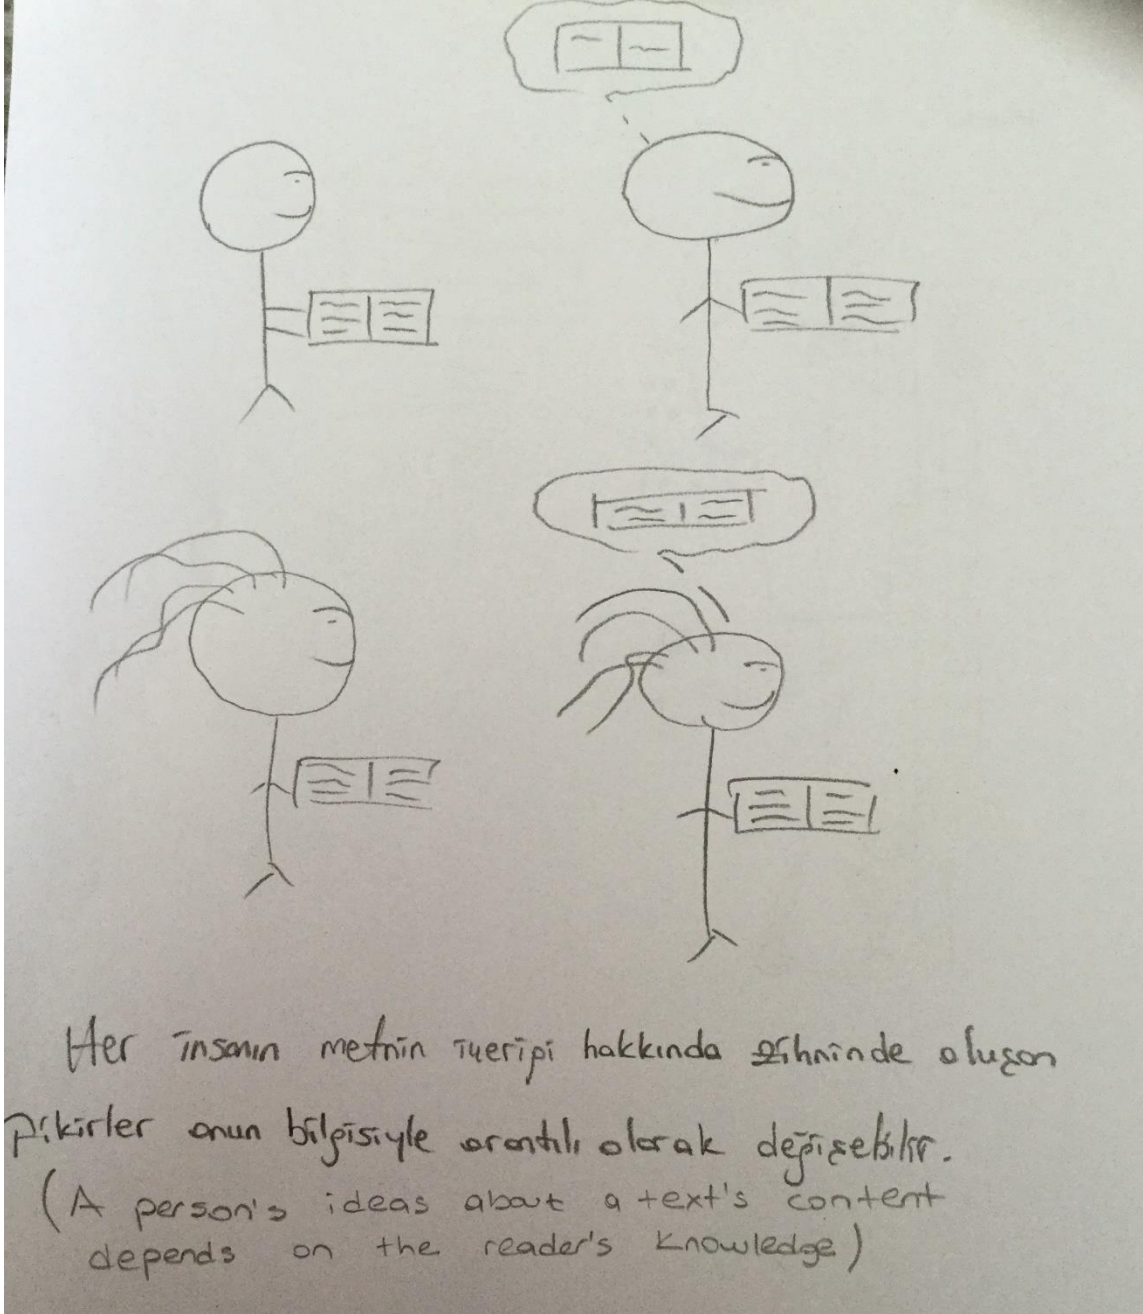 Her insanın metnin içeriği hakkında zihninde oluşan
fikirler onun bilgisiyle orantılı olarak değişebilir.
(A person's ideas about a text's content
depends on the reader's knowledge)